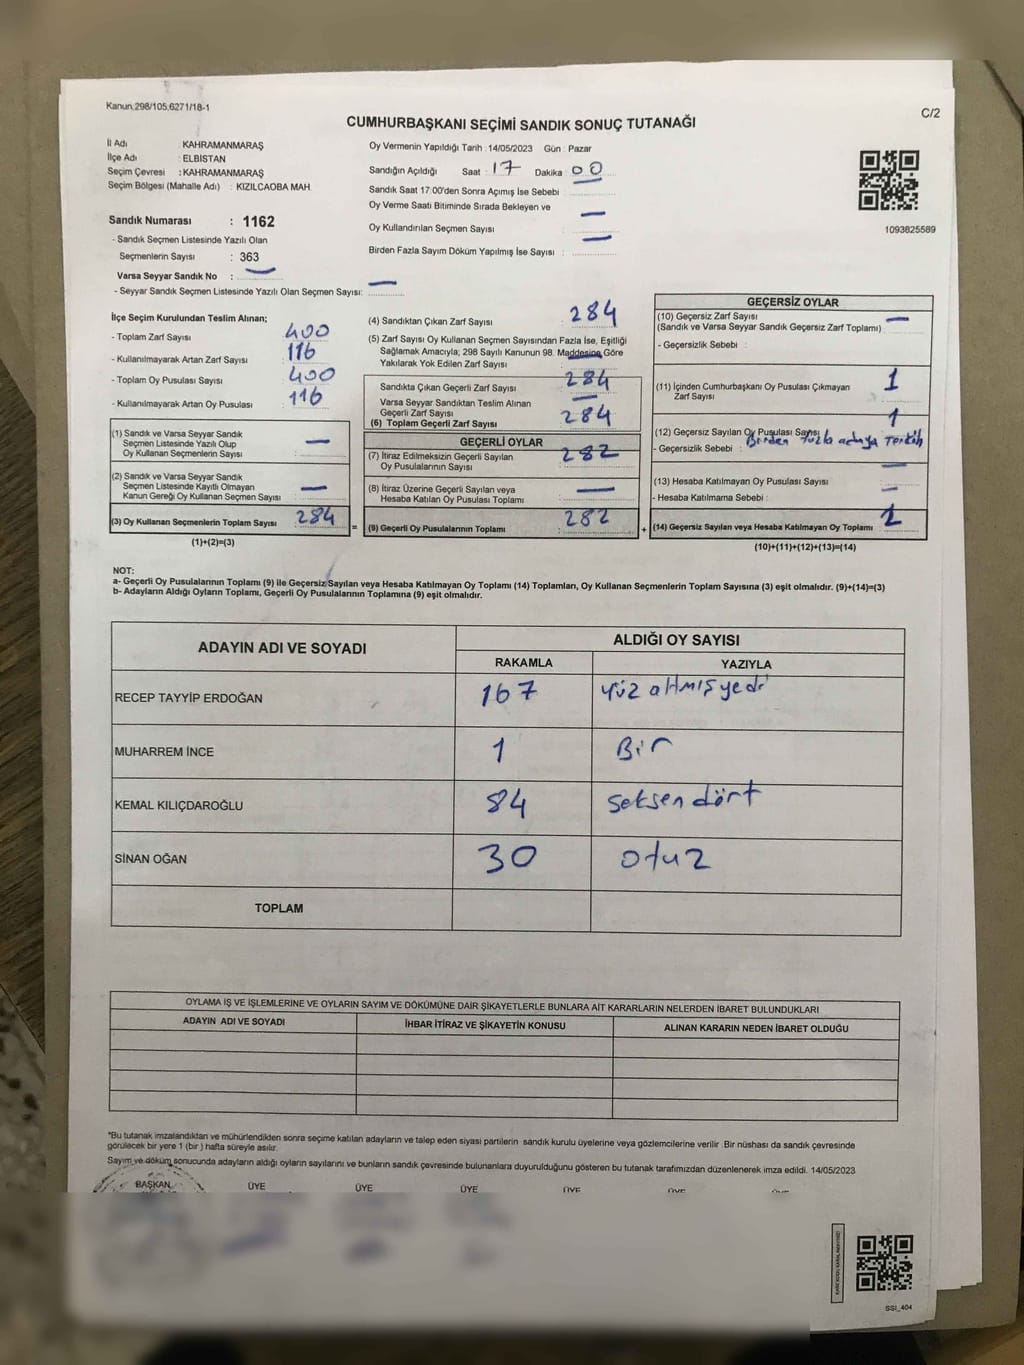 Kanun 298/105,6271/18-1
C/2
CUMHURBAŞKANI SEÇİMİ SANDIK SONUÇ TUTANAĞI
İl Adı : KAHRAMANMARAŞ
İlçe Adı : ELBİSTAN
Seçim Çevresi : KAHRAMANMARAŞ
Seçim Bölgesi (Mahalle Adı) : KIZILCAOBA MAH.
Sandık Numarası : 1162
- Sandık Seçmen Listesinde Yazılı Olan
Seçmenlerin Sayısı : 363
Varsa Seyyar Sandık No : —
- Seyyar Sandık Seçmen Listesinde Yazılı Olan Seçmen Sayısı: —
Oy Vermenin Yapıldığı Tarih : 14/05/2023 Gün : Pazar
Sandığın Açıldığı Saat : 17 Dakika : 00
Sandık Saat 17:00'den Sonra Açımış İse Sebebi :
Oy Verme Saati Bitiminde Sırada Bekleyen ve
Oy Kullandırılan Seçmen Sayısı : —
Birden Fazla Sayım Döküm Yapılmış İse Sayısı : —
1093825589
İlçe Seçim Kurulundan Teslim Alınan;
- Toplam Zarf Sayısı : 400
- Kullanılmayarak Artan Zarf Sayısı : 116
- Toplam Oy Pusulası Sayısı : 400
- Kullanılmayarak Artan Oy Pusulası : 116
(1) Sandık ve Varsa Seyyar Sandık
Seçmen Listesinde Yazılı Olup
Oy Kullanan Seçmenlerin Sayısı : —
(2) Sandık ve Varsa Seyyar Sandık
Seçmen Listesinde Kayıtlı Olmayan
Kanun Gereği Oy Kullanan Seçmen Sayısı : —
(3) Oy Kullanan Seçmenlerin Toplam Sayısı : 284 =
(1)+(2)=(3)
(4) Sandıktan Çıkan Zarf Sayısı : 284
(5) Zarf Sayısı Oy Kullanan Seçmen Sayısından Fazla İse, Eşitliği
Sağlamak Amacıyla; 298 Sayılı Kanunun 98. Maddesine Göre
Yakılarak Yok Edilen Zarf Sayısı : —
Sandıkta Çıkan Geçerli Zarf Sayısı : 284
Varsa Seyyar Sandıktan Teslim Alınan
Geçerli Zarf Sayısı : —
(6) Toplam Geçerli Zarf Sayısı : 284
GEÇERLİ OYLAR
(7) İtiraz Edilmeksizin Geçerli Sayılan
Oy Pusulalarının Sayısı : 282
(8) İtiraz Üzerine Geçerli Sayılan veya
Hesaba Katılan Oy Pusulaları Toplamı : —
(9) Geçerli Oy Pusulalarının Toplamı : 282 +
GEÇERSİZ OYLAR
(10) Geçersiz Zarf Sayısı : —
(Sandık ve Varsa Seyyar Sandık Geçersiz Zarf Toplamı)
- Geçersizlik Sebebi :
(11) İçinden Cumhurbaşkanı Oy Pusulası Çıkmayan
Zarf Sayısı : 1
(12) Geçersiz Sayılan Oy Pusulası Sayısı : 1
- Geçersizlik Sebebi : Birden fazla adaya
(13) Hesaba Katılmayan Oy Pusulası Sayısı : —
- Hesaba Katılmama Sebebi : —
(14) Geçersiz Sayılan veya Hesaba Katılmayan Oy Toplamı : 2
(10)+(11)+(12)+(13)=(14)
NOT:
a- Geçerli Oy Pusulalarının Toplamı (9) ile Geçersiz Sayılan veya Hesaba Katılmayan Oy Toplamı (14) Toplamları, Oy Kullanan Seçmenlerin Toplam Sayısına (3) eşit olmalıdır. (9)+(14)=(3)
b- Adayların Aldığı Oyların Toplamı, Geçerli Oy Pusulalarının Toplamına (9) eşit olmalıdır.
ADAYIN ADI VE SOYADI
ALDIĞI OY SAYISI
RAKAMLA YAZIYLA
RECEP TAYYİP ERDOĞAN 167 Yüz altmış yedi
MUHARREM İNCE 1 Bir
KEMAL KILIÇDAROĞLU 84 Seksen dört
SİNAN OĞAN 30 Otuz
TOPLAM
OYLAMA İŞ VE İŞLEMLERİNE VE OYLARIN SAYIM VE DÖKÜMÜNE DAİR ŞİKAYETLERLE BUNLARA AİT KARARLARIN NELERDEN İBARET BULUNDUKLARI
ADAYIN ADI VE SOYADI İHBAR İTİRAZ VE ŞİKAYETİN KONUSU ALINAN KARARIN NEDEN İBARET OLDUĞU
*Bu tutanak imzalandıktan ve mühürlendikten sonra seçime katılan adayların ve talep eden siyasi partilerin sandık kurulu üyelerine veya gözlemcilerine verilir .Bir nüshası da sandık çevresinde
görülecek bir yere 1 (bir ) hafta süreyle asılır.
Sayım ve döküm sonucunda adayların aldığı oyların sayılarını ve bunların sandık çevresinde bulunanlara duyurulduğunu gösteren bu tutanak tarafımızdan düzenlenerek imza edildi. 14/05/2023
BAŞKAN ÜYE ÜYE ÜYE ÜYE ÜYE
SSI_404